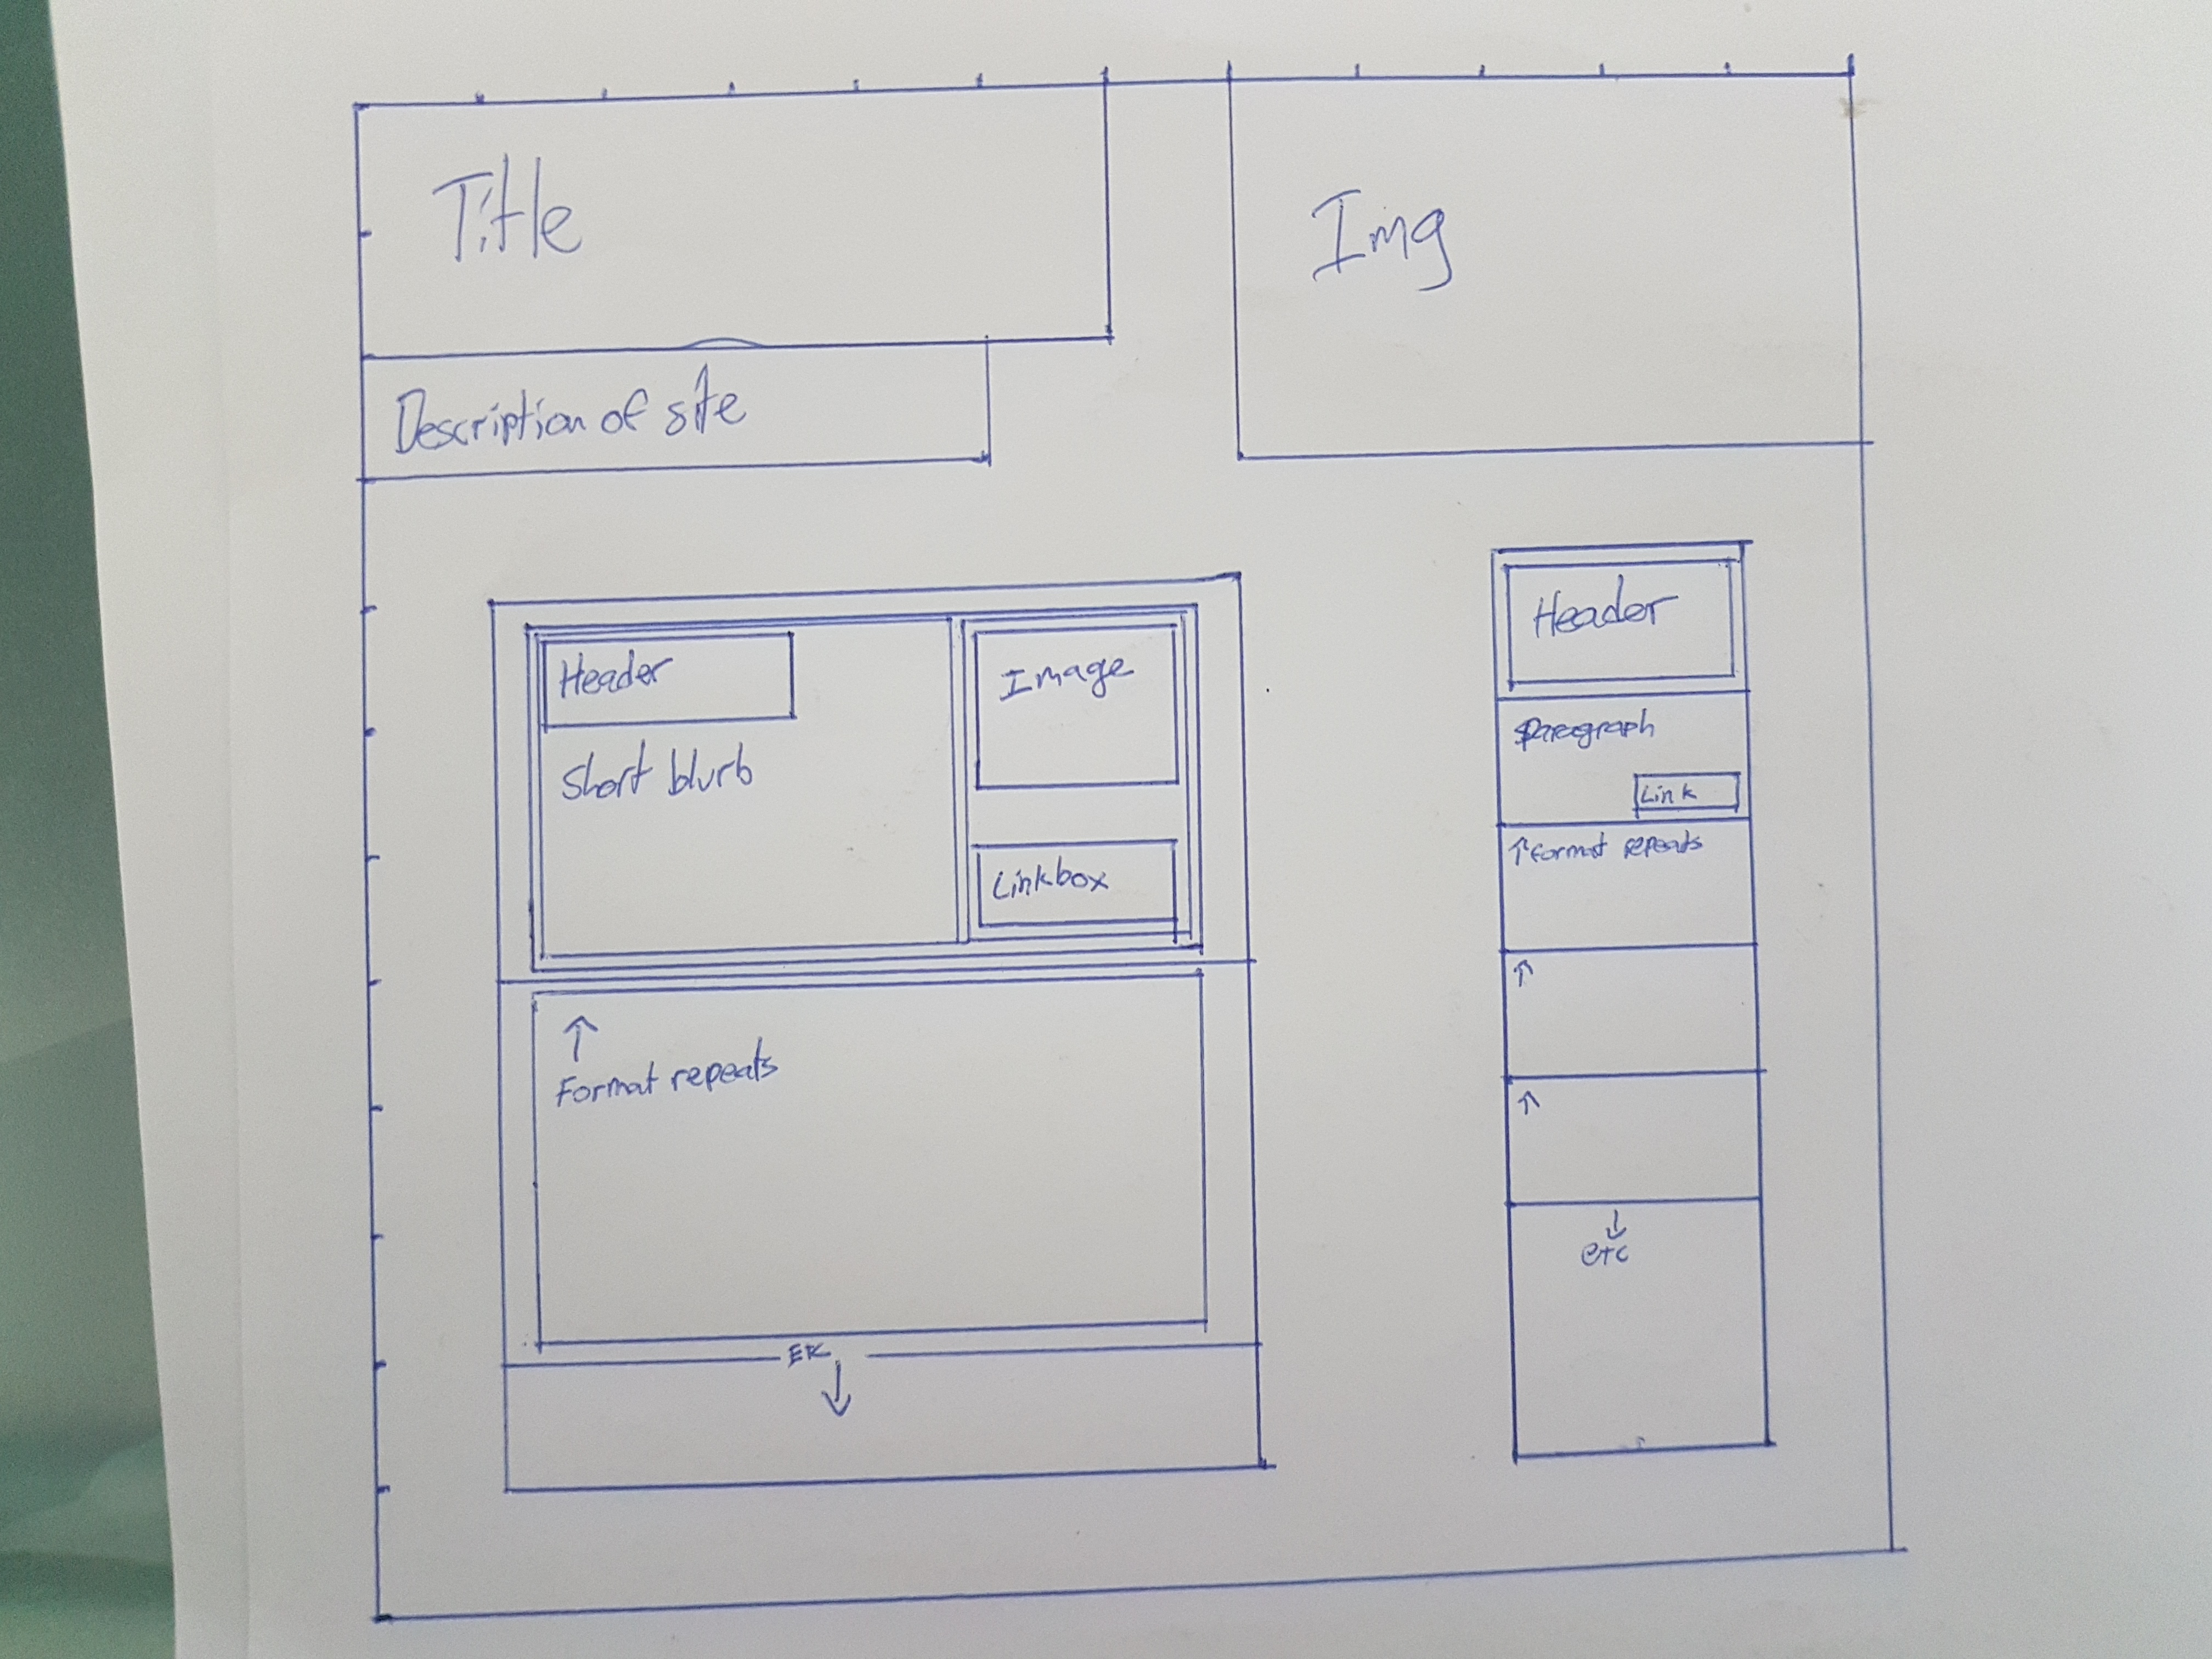 Title
Img
Description of site
Header
Short blurb
Image
Linkbox
↑
Format repeats
Etc
↓
Header
Paragraph
Link
↑ Format repeats
↑
↑
↓
etc